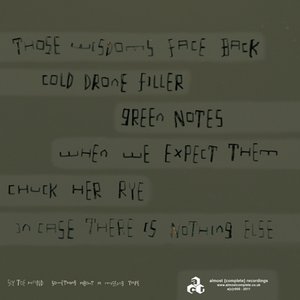 THOSE WISDOMS FACE BACK
COLD DRONE FILLER
GREEN NOTES
WHEN WE EXPECT THEM
CHUCK HER RYE
IN CASE THERE IS NOTHING ELSE
SOMETHING ABOUT A MISSING TAPE
almost [complete] recordings
www.almostcomplete.co.uk